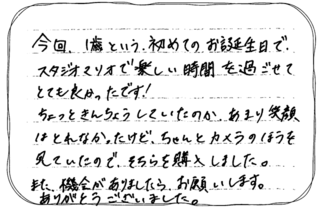 今回、1歳という、初めてのお誕生日で、
スタジオマリオで楽しい時間を過ごせて
とても良かったです!
ちょっときんちょうしていたのか、あまり笑顔
はとれなかったけど、ちゃんとカメラのほうを
見ていたので、そちらを購入しました。
また、機会がありましたら、お願いします。
ありがとうございました。